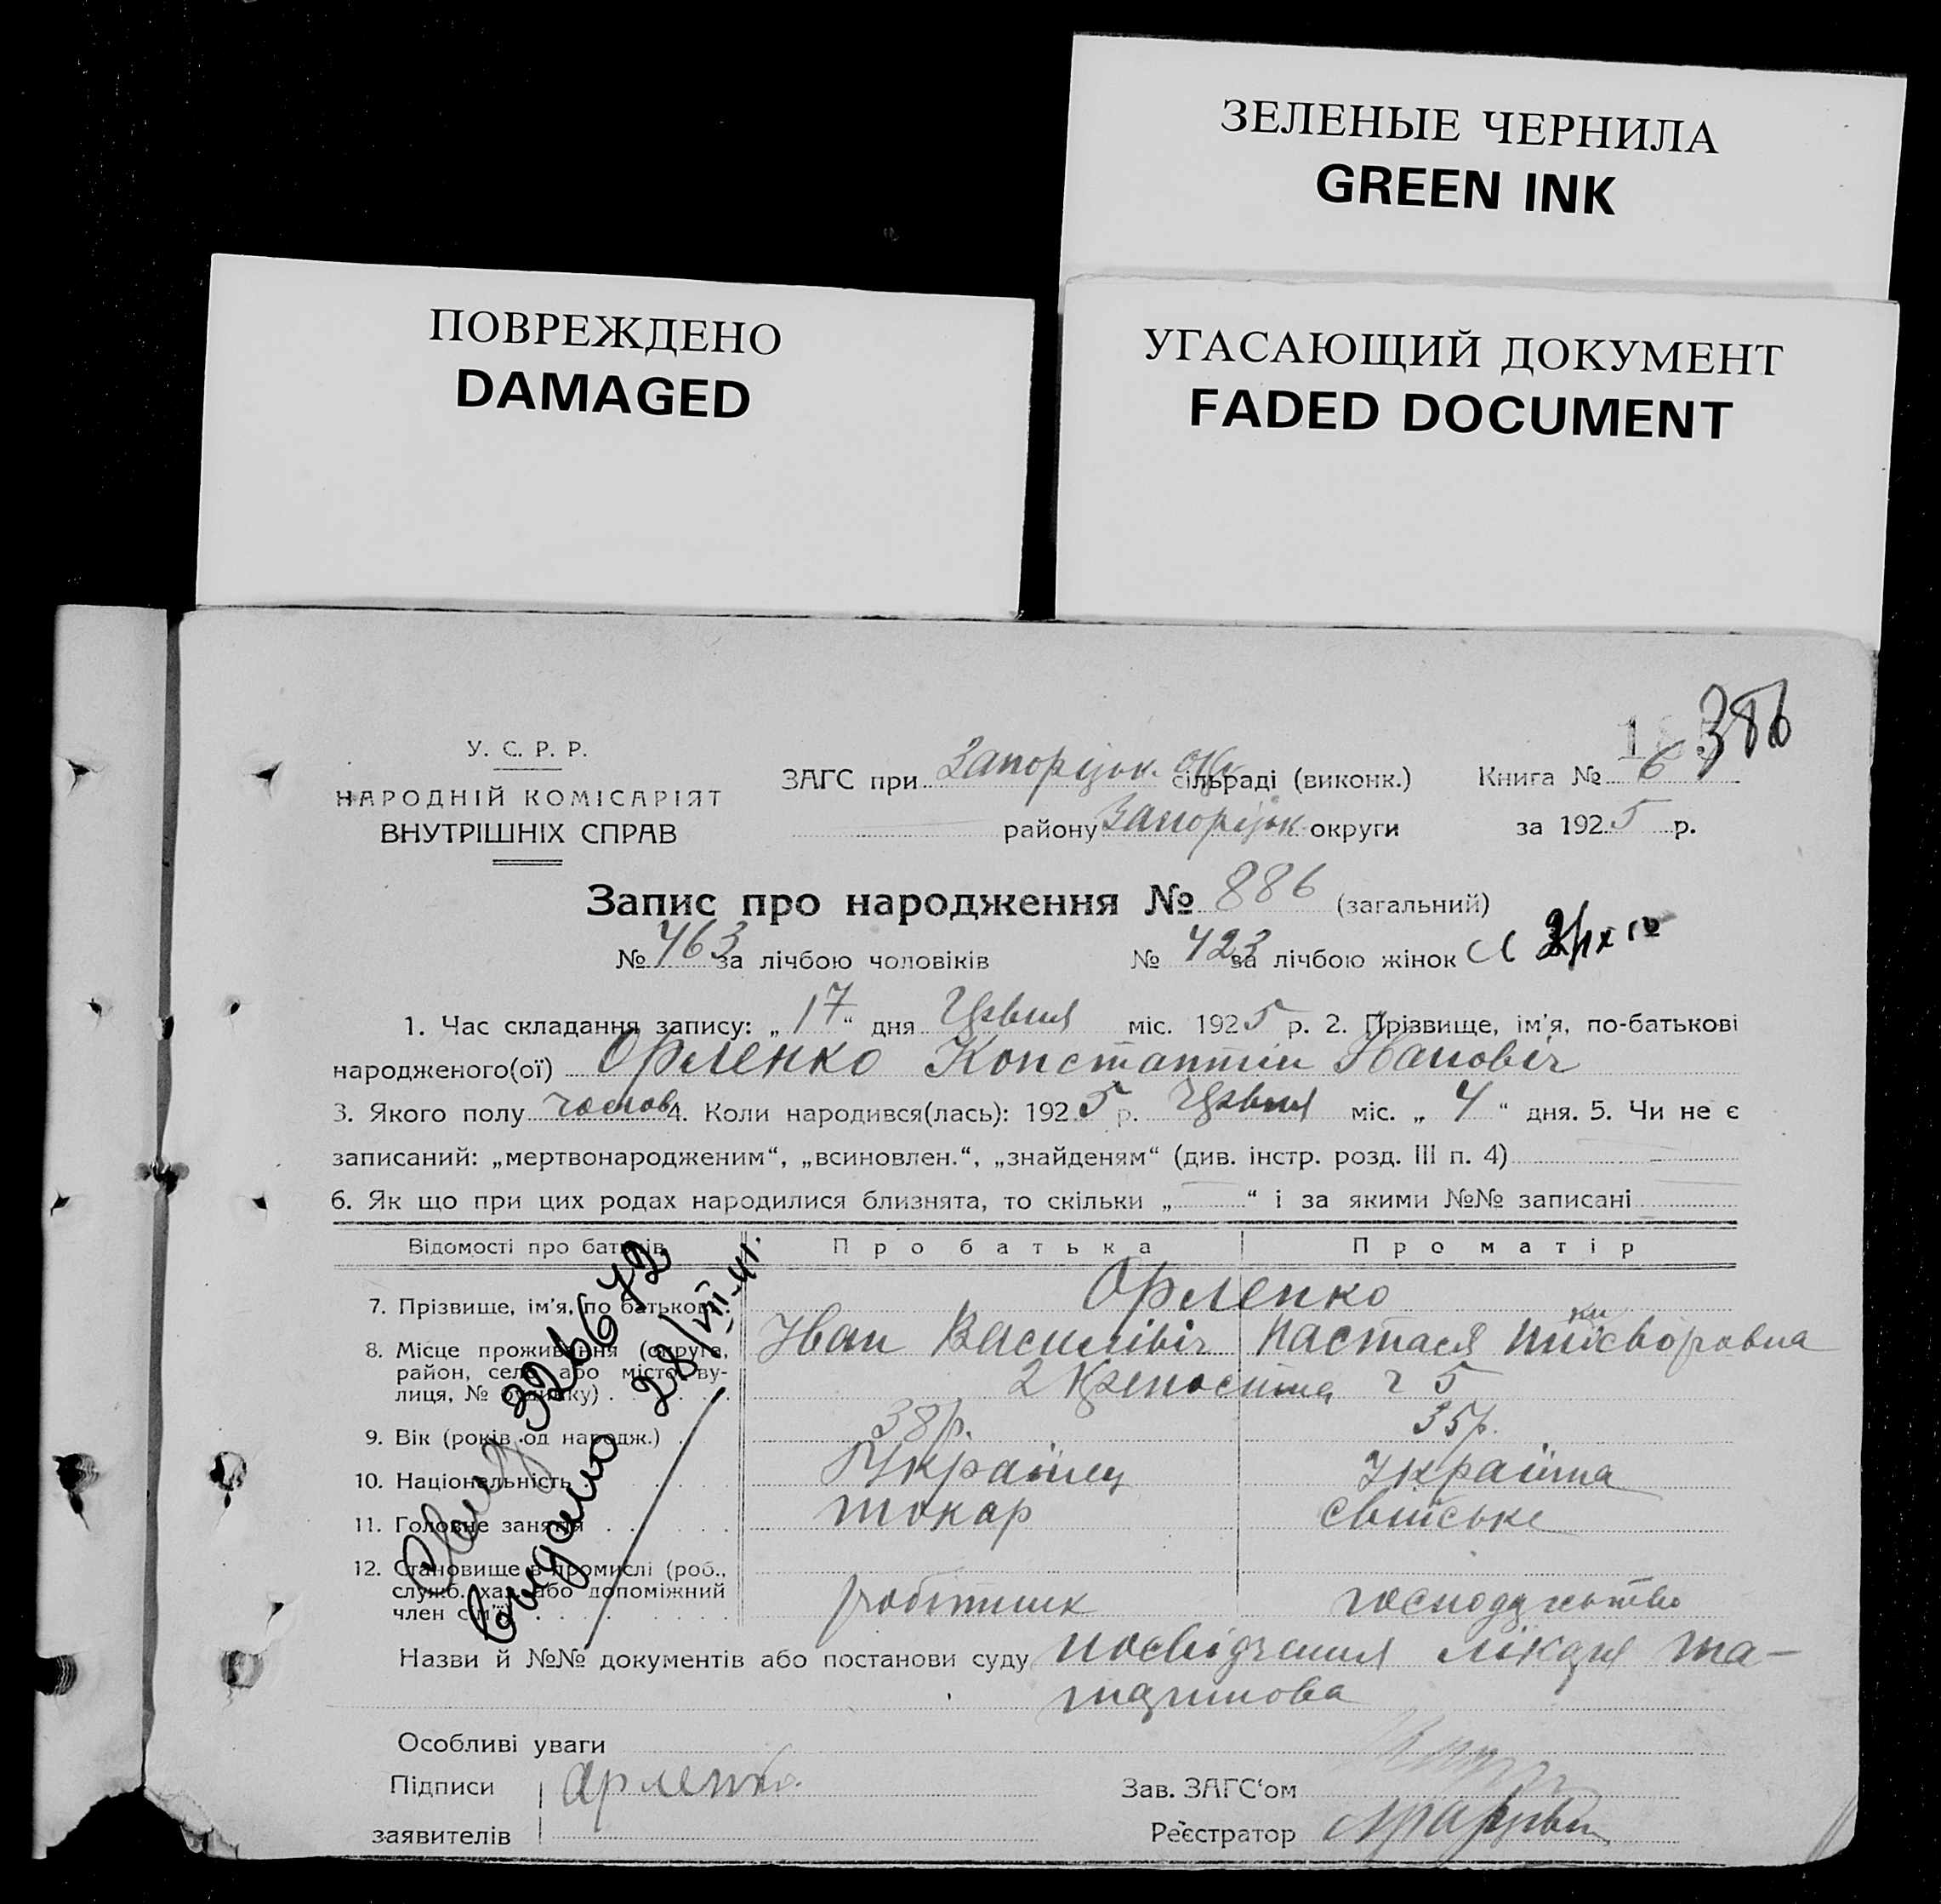 ЗЕЛЕНЫЕ ЧЕРНИЛА
GREEN INK
ПОВРЕЖДЕНО
DAMAGED
УГАСАЮЩИЙ ДОКУМЕНТ
FADED DOCUMENT
386
У. С. Р. Р.
НАРОДНІЙ КОМІСАРІЯТ
ВНУТРІШНІХ СПРАВ
ЗАГС при Запорізьк. Окр. сільраді (виконк.) Книга № 6
району Запорізьк. округи за 1925 р.
Запис про народження № 886 (загальний)
№ 463 за лічбою чоловіків № 423 за лічбою жінок
1. Час складання запису: „17“ дня Червня міс. 1925 р. 2. Прізвище, ім’я, по-батькові
народженого(ої) Орленко Константин Іванович
3. Якого полу чолов 4. Коли народився(лась): 1925 р. Червня міс. „4“ дня. 5. Чи не є
записаний: „мертвонародженим“, „всиновлен.“, „знайденям“ (див. інстр. розд. III п. 4)
6. Як що при цих родах народилися близнята, то скільки „ “ і за якими №№ записані
Відомості про батьків Про батька Про матір
7. Прізвище, ім’я, по батькові. Орленко
Іван Василівіч Настася
8. Місце проживання (округа,
район, село або місто, ву-
лиця, № будинку) 2 5
9. Вік (років од народж.) 38 р. 35 р.
10. Національність Українец Украінка
11. Головне заняття токар свійське
12. Становище в промислі (роб.,
служб. хаз. або допоміжний
член сім’ї) робітник господарство
28/VIII-41.
Назви й №№ документів або постанови суду посвідчення лікаря
Особливі уваги
Підписи Арленко
Зав. ЗАГС‘ом
заявителів
Реєстратор